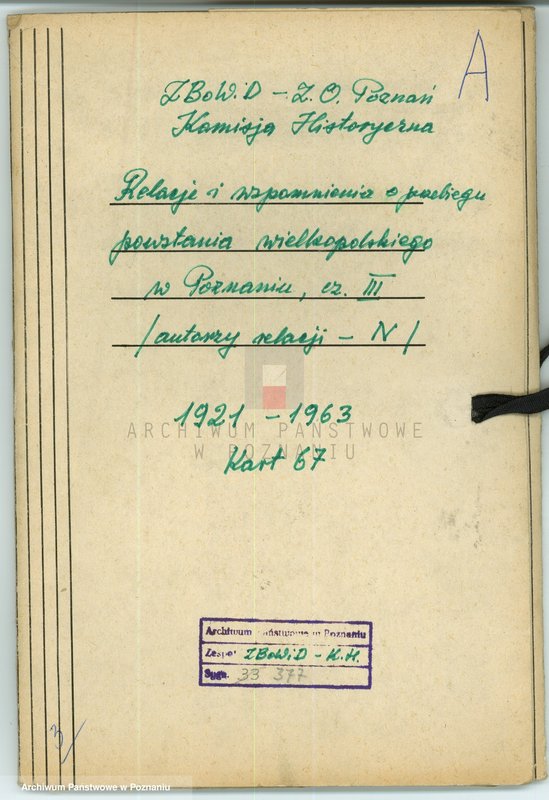 A
ZBoWiD – Z.O. Poznań
Komisja Historyczna
Relacje i wspomnienia o przebiegu
powstania wielkopolskiego
w Poznaniu, cz. III
/autorzy relacji – N/
1921 – 1963
ARCHIWUM PAŃSTWOWE
W POZNANIU
Kart 67
Archiwum Państwowe w Poznaniu
Zespół ZBoWiD – K.H.
Sygn. 33 377
3/
Archiwum Państwowe w Poznaniu